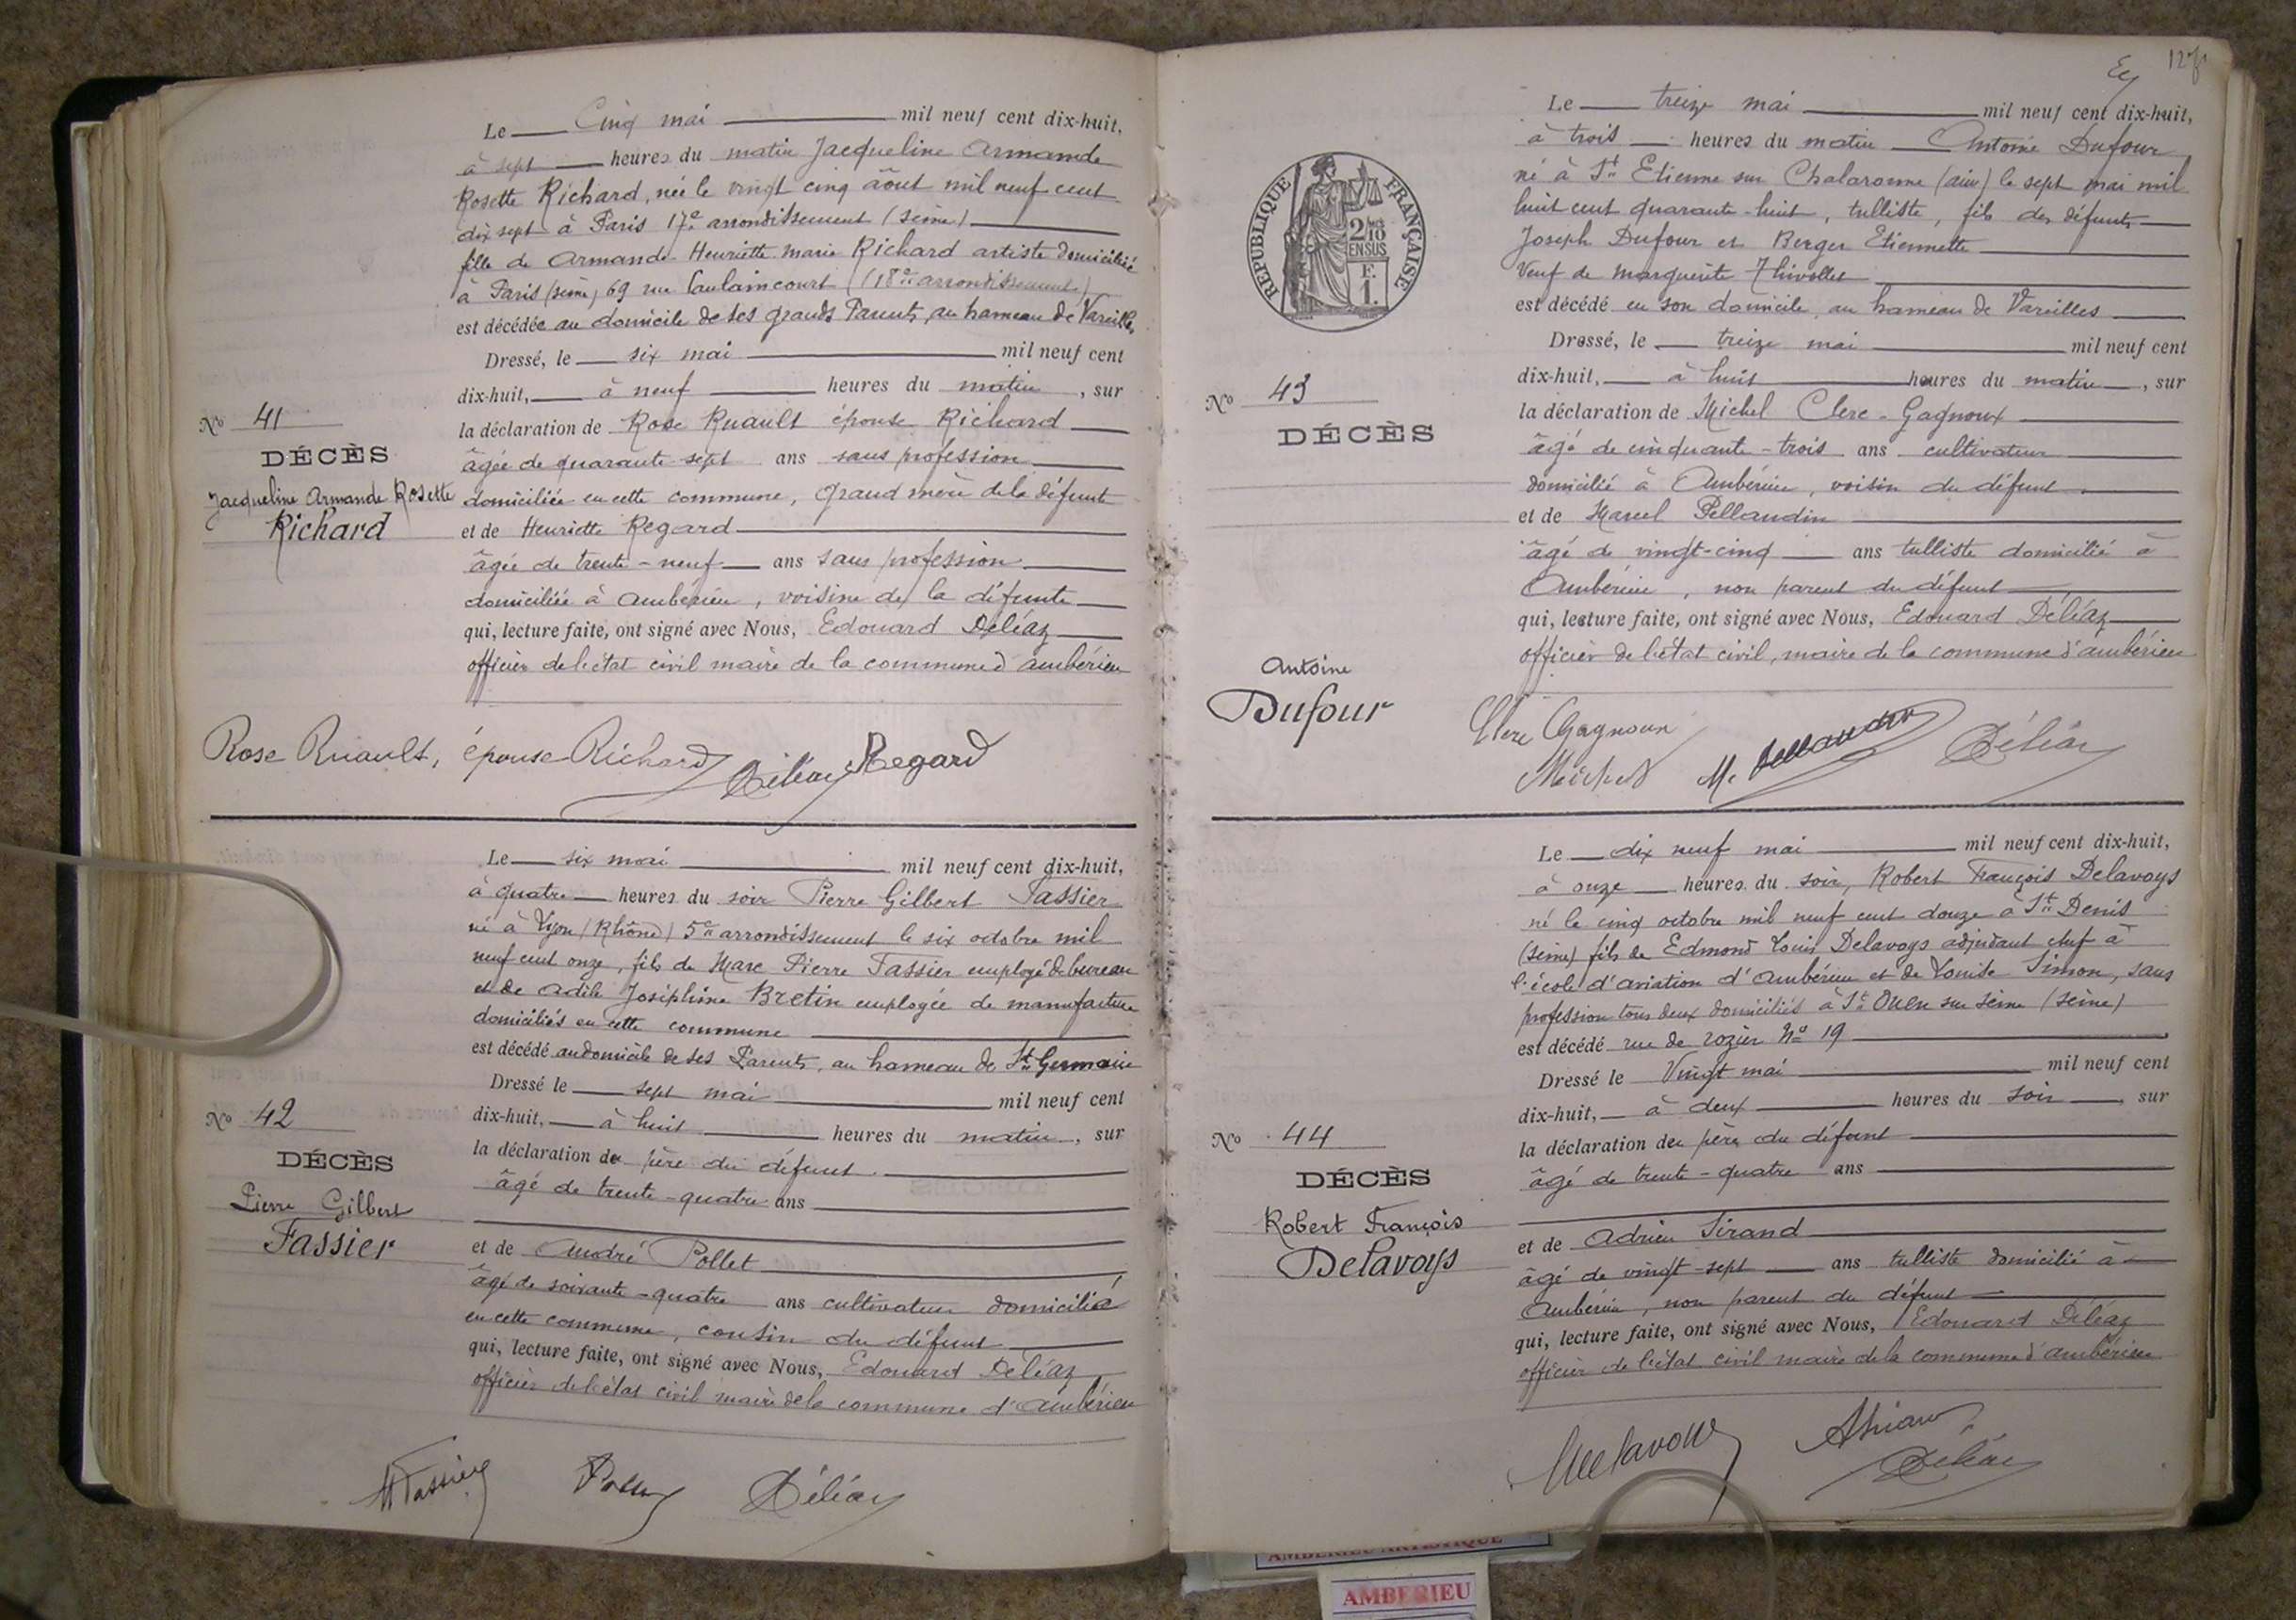 Le Cinq mai mil neuf cent dix-huit,
à sept heures du matin Jacqueline Armande
Rosette Richard, née le vingt cinq août mil neuf cent
dix sept à Paris 17e arrondissement (seine)
fille de Armande Henriette marie Richard artiste domiciliée
à Paris (seine) 69 rue Caulaincourt (18e arrondissement)
est décédée au domicile de ses grands Parents, au hameau de Vareilles,
Dressé, le six mai mil neuf cent
dix-huit, à neuf heures du matin, sur
la déclaration de Rose Ruault épouse Richard
âgée de quarante sept ans sans profession
domiciliée en cette commune, grand mère de la défunte
et de Henriette Regard
âgée de trente-neuf ans sans profession
domiciliée à ambérieu, voisine de la défunte
qui, lecture faite, ont signé avec Nous, Edouard Déléaz
officier de l'état civil maire de la commune d'ambérieu
No 41
DÉCÈS
Jacqueline Armande Rosette
Richard
Rose Ruault, épouse Richard Déléaz Regard
Le six mai mil neuf cent dix-huit,
à quatre heures du soir Pierre Gilbert Fassier
né à Lyon (Rhône) 5e arrondissement le six octobre mil
neuf cent onze, fils de Marc Pierre Fassier employé de bureau
et de Adèle Joséphine Bretin employée de manufacture
domiciliés en cette commune
est décédé au domicile de ses Parents, au hameau de St Germain
Dressé le sept mai mil neuf cent
dix-huit, à huit heures du matin, sur
la déclaration du père du défunt
âgé de trente-quatre ans
et de André Pollet
âgé de soixante-quatre ans cultivateur domicilié
en cette commune, cousin du défunt
qui, lecture faite, ont signé avec Nous, Edouard Déléaz
officier de l'état civil maire de la commune d'Ambérieu
No 42
DÉCÈS
Pierre Gilbert
Fassier
MFassier Pollet Déléaz
Le treize mai mil neuf cent dix-huit,
à trois heures du matin Antoine Dufour
né à St Etienne sur Chalaronne (ain) le sept mai mil
huit cent quarante-huit, tulliste, fils des défunts
Joseph Dufour et Berger Etiennette
Veuf de marguerite Thivollet
est décédé en son domicile, au hameau de Vareilles
Dressé, le treize mai mil neuf cent
dix-huit, à huit heures du matin, sur
la déclaration de Michel Clerc-Gagnoux
âgé de cinquante-trois ans cultivateur
domicilié à Ambérieu, voisin du défunt
et de Marcel Pellaudin
âgé de vingt-cinq ans tulliste domicilié à
Ambérieu, non parent du défunt
qui, lecture faite, ont signé avec Nous, Edouard Déléaz
officier de l'état civil, maire de la commune d'ambérieu
REPUBLIQUE FRANÇAISE
2/10
EN SUS
F.
1.
No 43
DÉCÈS
Antoine
Dufour
Clerc Gagnoux
Michel M. Pellaudin Déléaz
Le dix neuf mai mil neuf cent dix-huit,
à onze heures du soir, Robert François Delavoys
né le cinq octobre mil neuf cent douze à St Denis
(seine) fils de Edmond Louis Delavoys adjudant chef à
l'école d'aviation d'Ambérieu et de Louise Simon, sans
profession tous deux domiciliés à St Ouen sur Seine (seine)
est décédé rue de rozier No 19
Dressé le Vingt mai mil neuf cent
dix-huit, à deux heures du soir, sur
la déclaration du père du défunt
âgé de trente-quatre ans
et de Adrien Sirand
âgé de vingt-sept ans tulliste domicilié à
Ambérieu, non parent du défunt
qui, lecture faite, ont signé avec Nous, Edouard Déléaz
officier de l'état civil maire de la commune d'ambérieu
No 44
DÉCÈS
Robert François
Delavoys
Delavoys Déléaz
AMBERIEU ARTISTIQUE
AMBERIEU